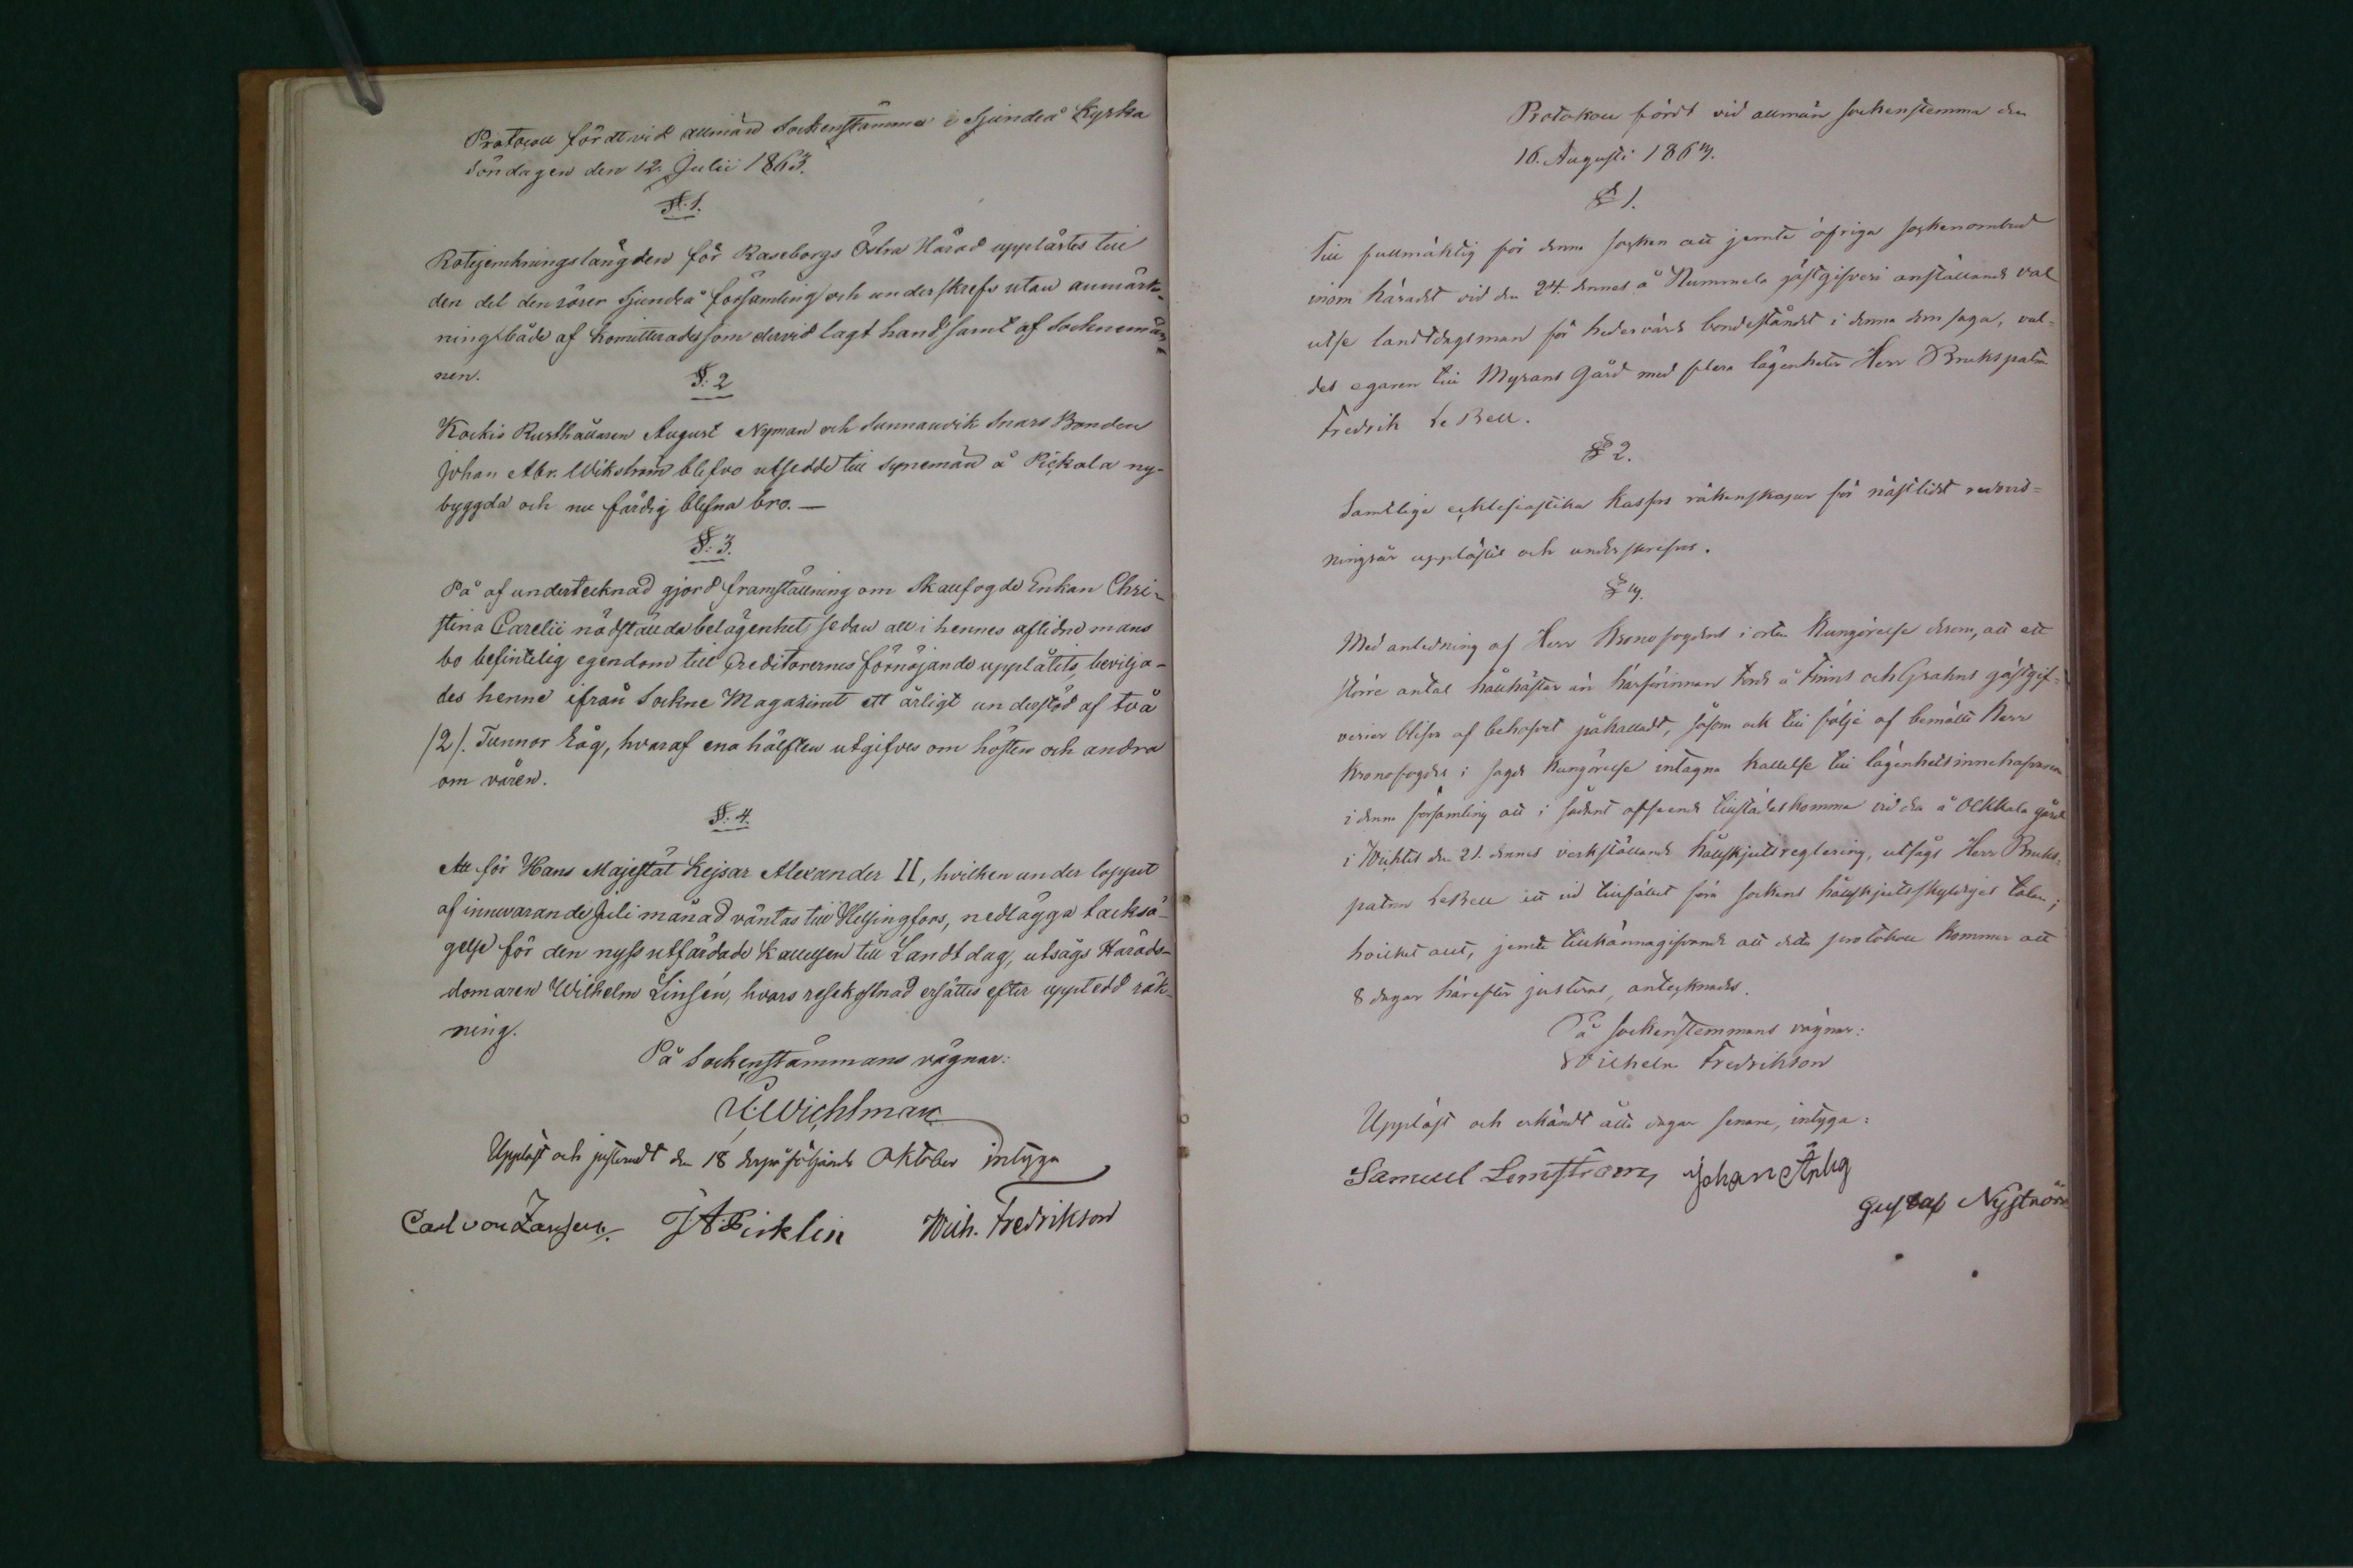 Protocoll fördt vid allmän Sockenstämma i Sjundeå Kyrka
Söndagen den 12. Julii 1863.
§: 1.
Rotejemkningslängden för Raseborgs Östra Härad upplästes till
den del den rörer Sjundeå församling och underskrefs utan anmärk-
ning både af Komitterade som dervid lagt hand samt af Sockenemän-
nen.
§: 2
Kockis Rusthållaren August Nyman och Sunnanvik Snars Bonden
Johan Abr. Wikström blefvo utsedde till synemän å Pickala ny-
byggda och nu färdig blefna bro. —
§: 3.
På af undertecknad gjord framställning om Skallfogde Enkan Chri-
stina Carelii nödställda belägenhet, sedan all i hennes aflidne mans
bo befintelig egendom till Creditorernes förnöjande upplåtits, bevilja-
des henne ifrån Sockne Magasinet ett årligt understöd af två
/2/. Tunnor Råg, hvaraf ena hälften utgifves om hösten och andra
om våren.
§: 4.
Att för Hans Majestät Kejsar Alexander II, hvilken under loppet
af innevarande Juli månad väntas till Helsingfors, nedlägga tacksä-
gelse för den nyss utfärdade Kallelsen till Landtdag, utsågs Härads-
domaren Wilhelm Linsén, hvars resekostnad ersättes efter uppteed räk-
ning.
På Sockenstämmans vägnar:
Wichtman
Uppläst och justeradt den 18 derpåföljande Oktober intyga
Carl von Zansen. J A Pirklin Wilh. Fredrikson
Protokoll fördt vid allmän sockenstemma den
16. Augusti 1863.
§ 1.
Till fullmäktig för denna socken att jemte öfriga sockenombud
inom häradet vid den 24. dennes å Nummela gästgifveri anställande val
utse landtdagsman för hedervärda bondeståndet i denna dom saga, val-
des egaren till Myrans Gård med flera lägenheter Herr Brukspatron
Fredrik LeBell.
§ 2.
Samtlige ecklesiastika kassors räkenskaper för nästlidet redovis-
ningsår upplästes och underskrefvos.
§ 3.
Med anledning af Herr Kronofogdens i orten Kungörelse derom, att ett
större antal hållhästar än härförinnan dock å Finns och Grahns gästgif-
verier blifva af behofvet påkalladt, såsom ock till följe af bemälte Herr
Kronofogdes i sagde Kungörelse intagna kallelse till lägenhetsinnehafvarne
i denna församling att i sådant afseende tillstädeskomma vid den å Olkkala gård
i Wichtis den 21. dennes verkställande hållskjutsreglering, utsågs Herr Bruks-
patron LeBell att vid tillfället föra sockens hållskjutsskyldiges talan;
hvilket allt, jemte tillkännagifvande att detta protokoll kommer att
8 dagar härefter justeras, antecknades.
På sockenstemmans vägnar:
Wilhelm Fredrikson
Uppläst och erkändt åtta dagar senare, intyga:
Samuel Lemström, Johan
Gustaf Nyström